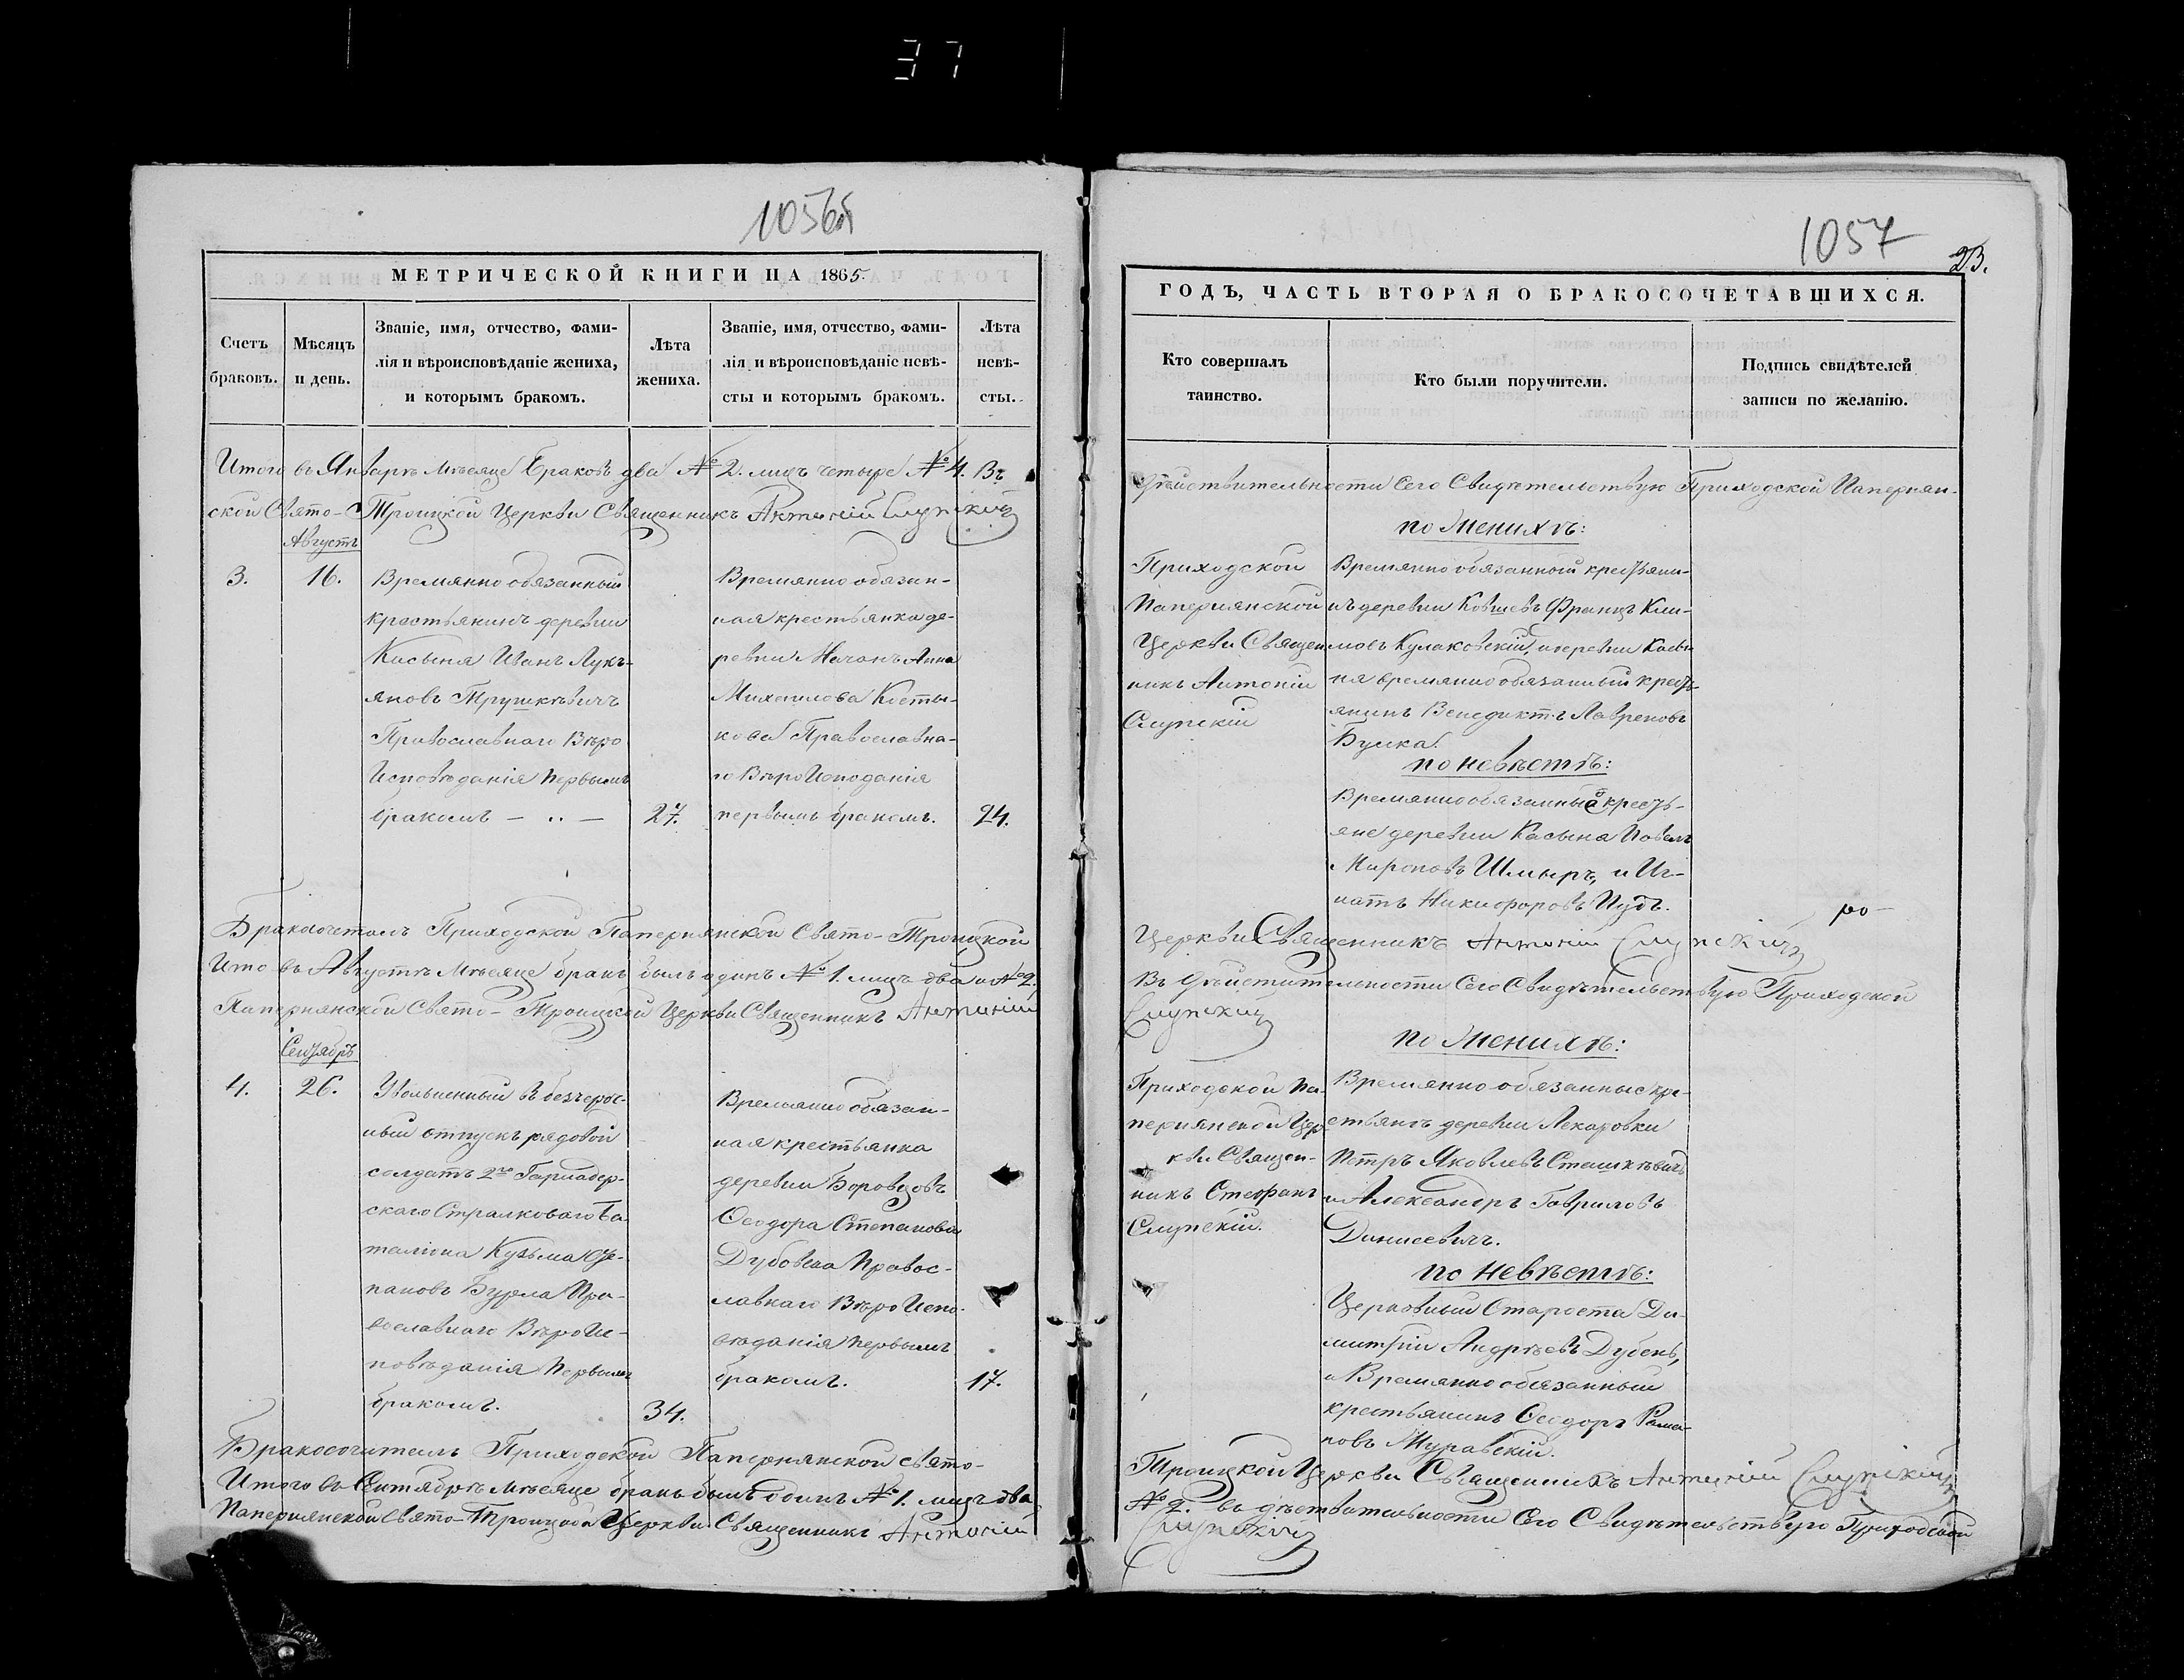 37
1056об
МЕТРИЧЕСКОЙ КНИГИ НА 1865.
Счетъ браковъ.
Мѣсяцъ и день.
Званіе, имя, отчество, фами-
лія и вѣроисповѣданіе жениха,
и которымъ бракомъ.
Лѣта жениха.
Званіе, имя, отчество, фами-
лія и вѣроисповѣданіе невѣ-
сты и которымъ бракомъ.
Лѣта невѣ-
сты.
Итого въ Январѣ Мѣсяцѣ браковъ два № 2. лицъ четыре № 4. Въ
ской Свято-Троицкой Церкви Священникъ Антоній Слупскій
Августъ
3.
16.
Времянно обязанный
крестьянинъ деревни
Касыня Иванъ Лукь-
яновъ Трушкѣвичъ
Православнаго Вѣро
Исповѣданія первымъ
бракомъ
27.
Времянно обязан-
ная крестьянка де-
ревни Мачанъ Анна
Михайлова Косты-
кова Православна-
го ВѣроИсподанія
первымъ бракомъ.
24.
Бракосочеталъ Приходской Папернянской Свято-Троицкой
Итo въ Августѣ Мѣсяцѣ бракъ былъ одинъ № 1. лицъ два № 2.
Папернянской Свято-Троицкой Церкви Священникъ Антоній
Сентябрь
4.
26.
Увольненный въ безчерос-
ный отпускъ рядовой
солдатъ 2го
скаго Стралковаго Ба-
таліона Кузьма Сте-
пановъ Бурла Пра-
вославнаго ВѣроИс-
повѣданія первымъ
бракомъ.
34.
Времянно обязан-
ная крестьянка
деревни Боровцовъ
Ѳеодора Степанова
Дубовска Правос-
лавнаго ВѣроИспо-
вѣданія первымъ
бракомъ.
17.
Бракосочиталъ Приходской Папернянской свято-
Итого въ Сентябрѣ Мѣсяцѣ бракъ былъ одинъ № 1. лицъ два
Папернянской Свято-Троицкой Церкви Священникъ Антоній
1057
23.
ГОДЪ, ЧАСТЬ ВТОРАЯ О БРАКОСОЧЕТАВШИХСЯ.
Кто совершалъ
таинство.
Кто были поручители.
Подпись свидѣтелей
записи по желанію.
Дѣйствительности Сего Свидѣтельствую Приходской Папернян-
по Женихѣ:
Приходской
Папернянской
Церкви Священ
никъ Антоній
Слупскій
Времянно обязанный крестьяни-
нъ деревни Ковшевъ Францъ Кли-
мовъ Кулаковскій, и деревни Касы-
ня времянно обязанный кресть-
янинъ Венедиктъ Лавреновъ
Булка.
по невѣстѣ:
Времянно обязанные кресть-
яне деревни Касына Павелъ
Мироновъ Шмыръ, и Иг-
натъ Никифоровъ Пудъ.
Церкви Священникъ Антоній Слупскій
Въ Дѣйстительности Сего Свидѣтельствую Приходской
Слупскій
по Женихѣ:
Приходской Па-
пернянской Цер
кви Священ-
никъ Стефанъ
Слупскій.
Времянно обязанные кре-
стьянъ деревни Лекаровки
Петръ Яковлевъ Сташкѣвичъ
и Александръ Гавриловъ
Динисевичъ.
по невѣстѣ:
Церковный Староста Ди-
митрій Андрѣевъ Дубень,
и Времянно обязанный
крестьянинъ Ѳеодоръ Рама-
новъ Муравскій.
Троицкой Церкви Священникъ Антоній Слупскій
№ 2. въ дѣствительности Сего Свидѣтельствую Приходской
Слупскій